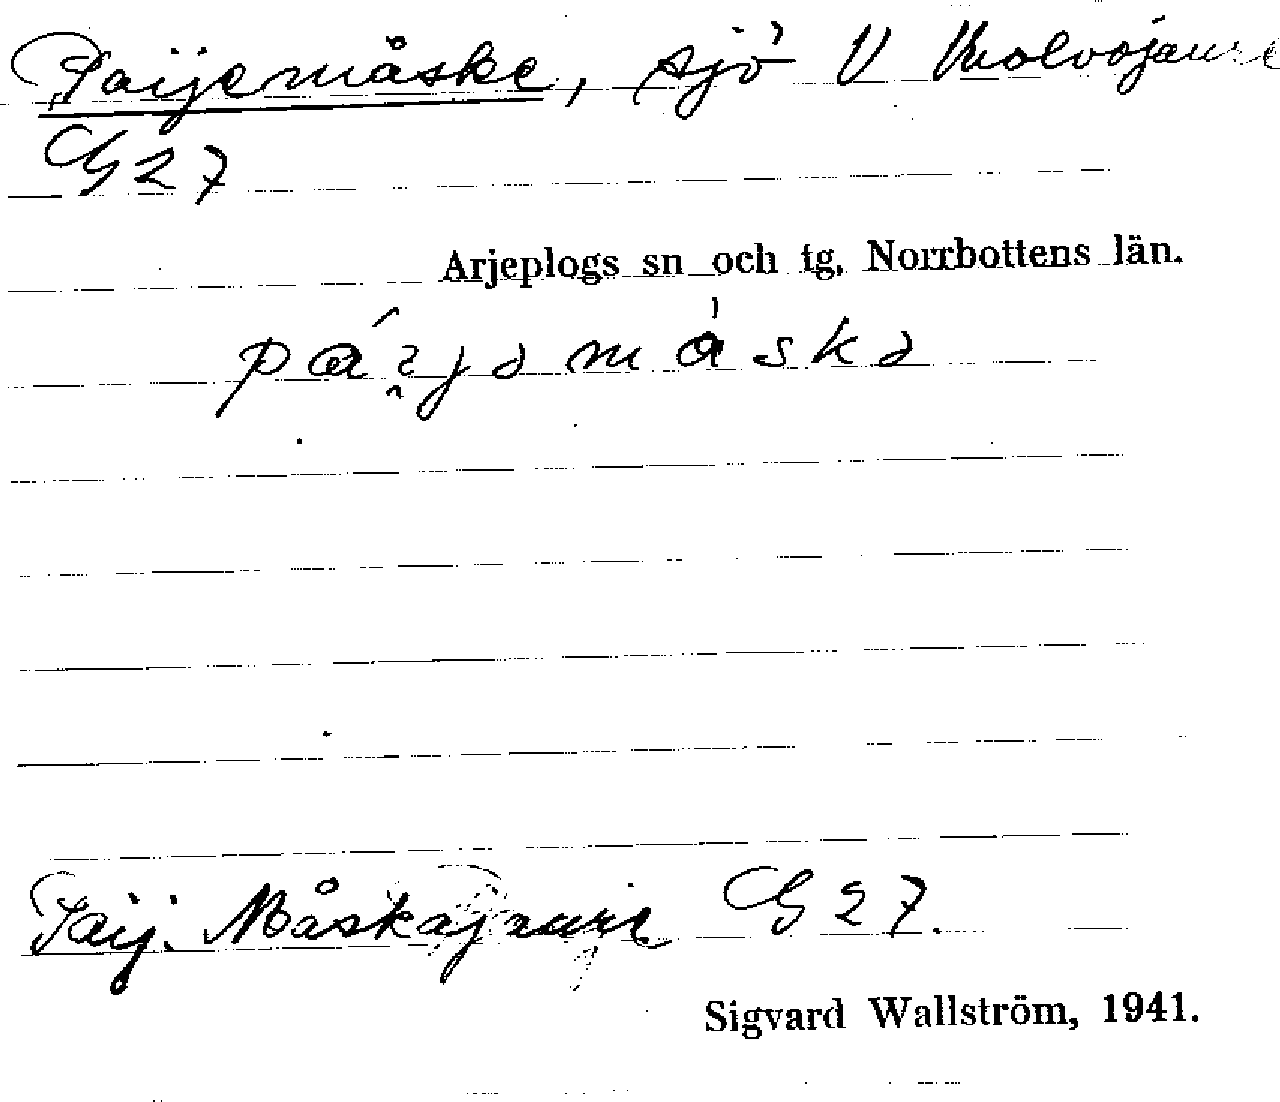 Paijemåske, sjö V
G 27
Arjeplogs sn och tg, Norrbottens län.
Paij. Måskajaure G 27.
Sigvard Wallström, 1941.